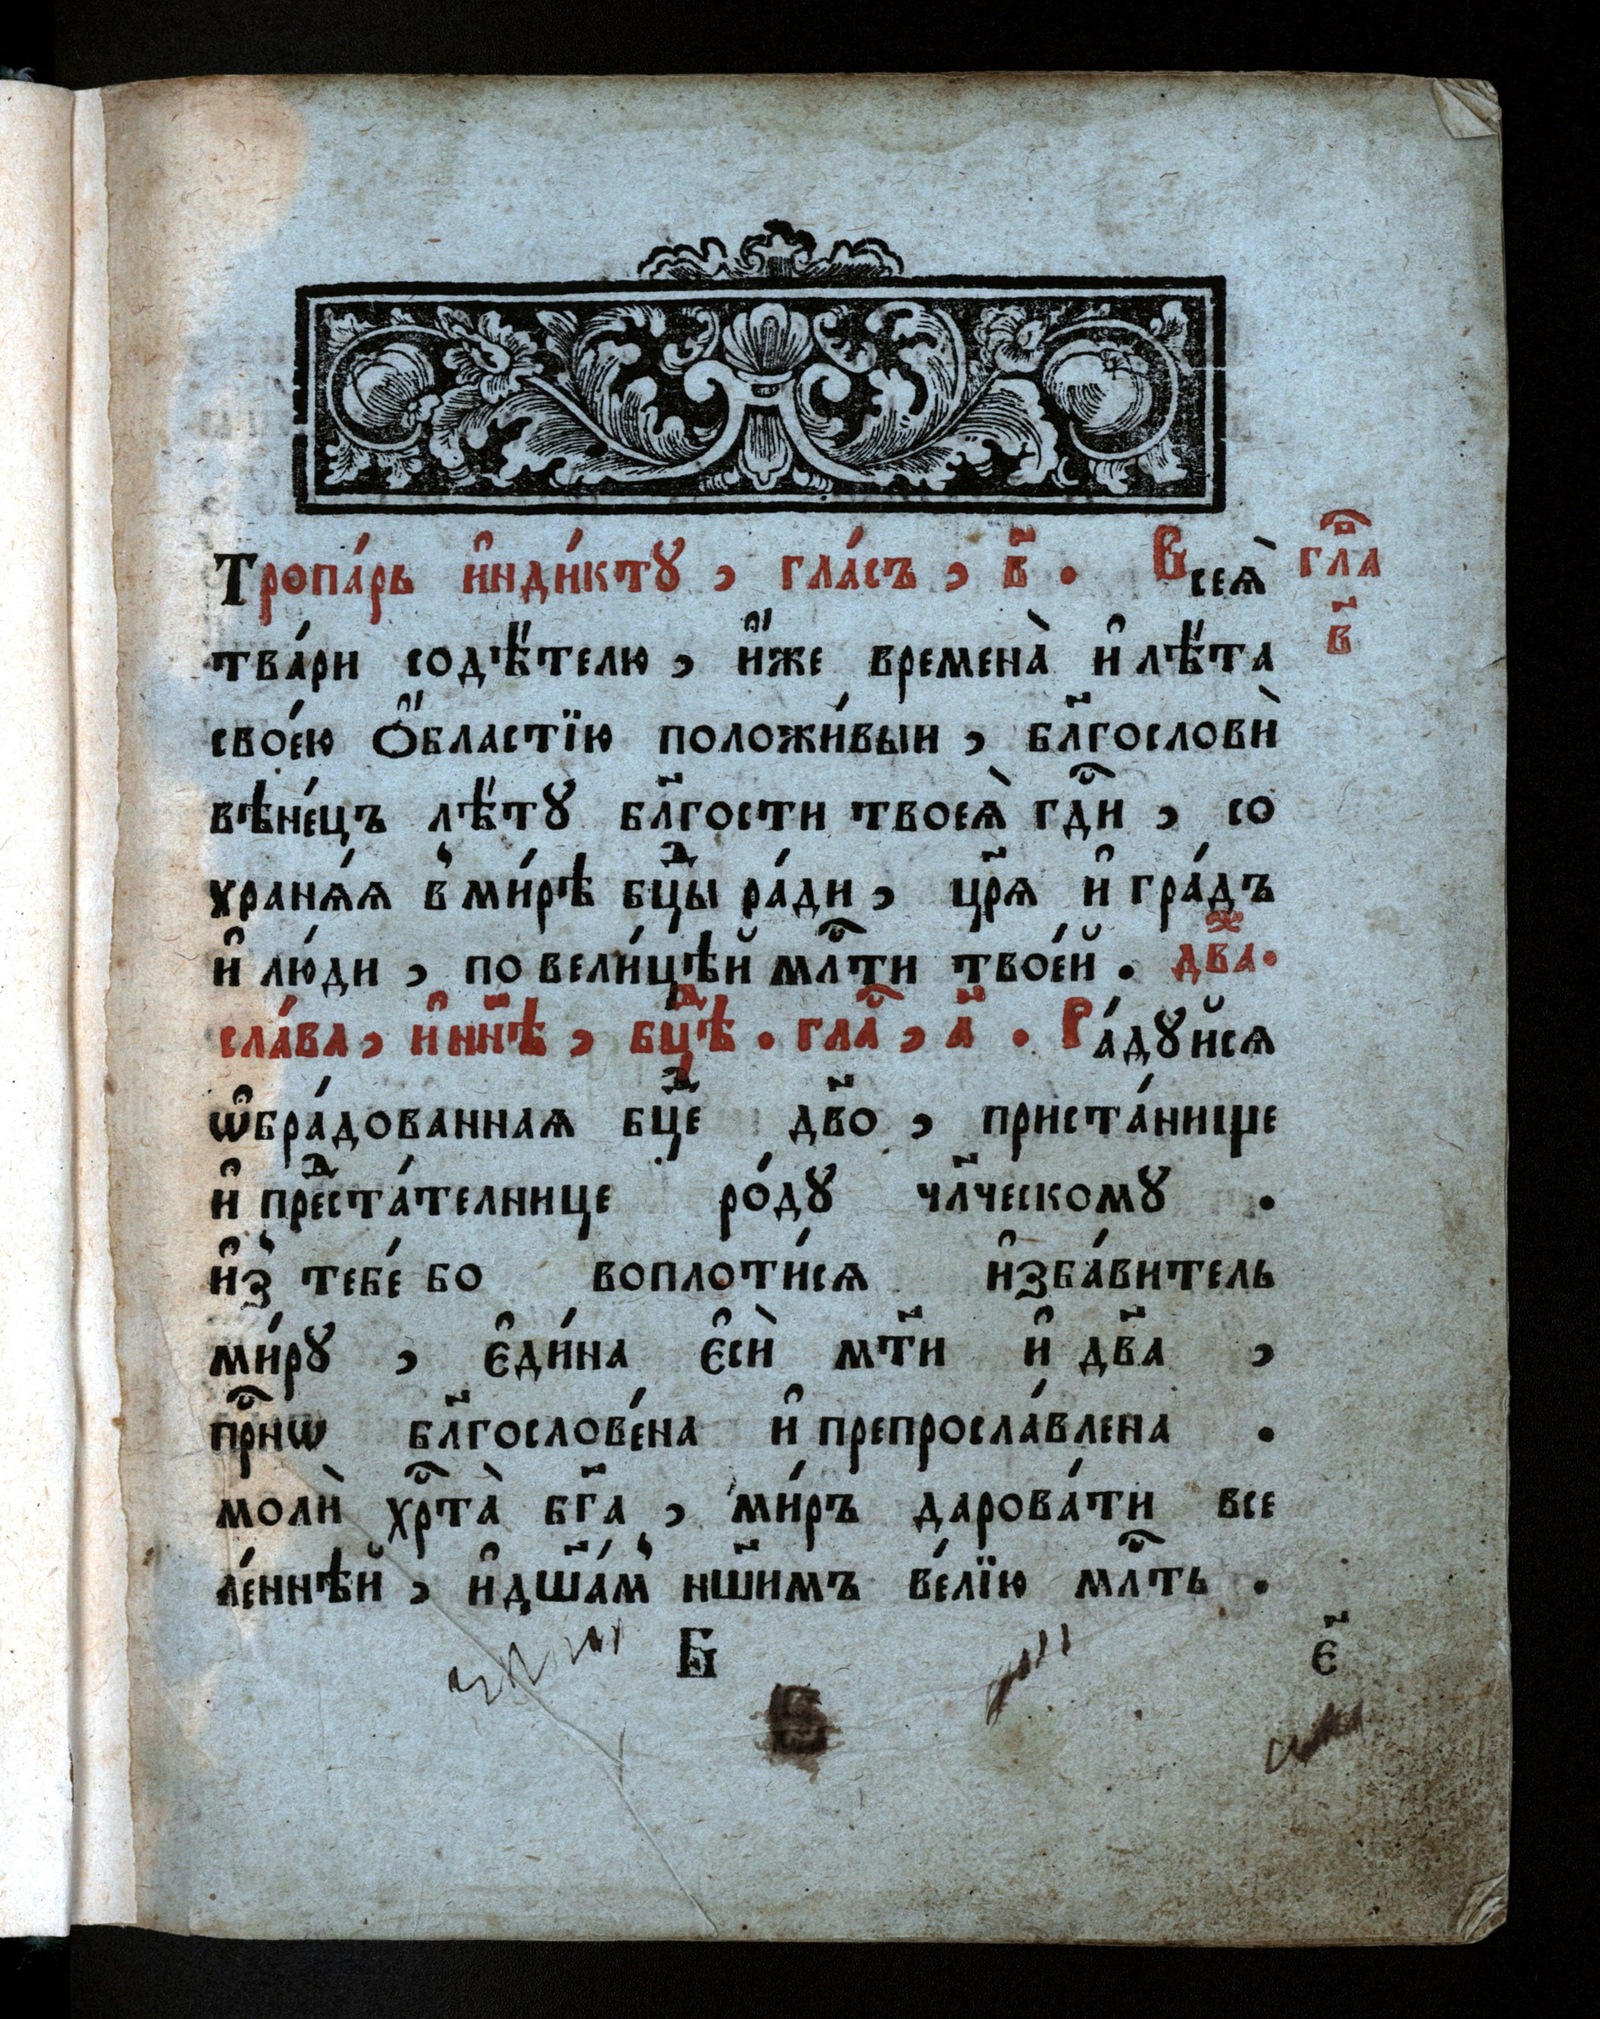 Тропа́рь и҆нди́ктꙋ , гла́съ , в҃ . Всеѧ̀ гла̑
в҃
тва́ри содѣ́телю , и҆́же времена̀ и҆ лѣ́та
свое́ю ѻ҆́бластїю положи́выи , бл҃гословѝ
вѣне́цъ лѣ́тꙋ бл҃гости твоеѧ̀ гдⷭ҇и , со
хранѧ́ѧ в̾ ми́рѣ бцⷣы ра́ди , цр҃ѧ и҆ гра́дъ
и҆ лю́ди , по вели́цѣй млⷭ҇ти твое́й . два́жⷣ .
сла́ва , и҆ нн҃ѣ , бцⷣѣ . глаⷭ҇ , а҃ . Ра́дꙋйсѧ
ѡ҆бра́дованнаѧ бцⷣе дв҃о , приста́нище
и҆ преⷣста́телнице ро́дꙋ чл҃ческомꙋ .
и҆з̾ тебе́ бо воплоти́сѧ и҆зба́витель
ми́рꙋ , є҆ди́на є҆сѝ мт҃и и҆ дв҃а ,
прⷭ҇нѡ бл҃гослове́на и҆ препросла́влена .
молѝ хрⷭ҇та̀ бг҃а , ми́ръ дарова́ти все
ле́ннѣй , и҆ дш҃а́м̾ нш҃имъ ве́лїю млⷭ҇ть .
Б є҃